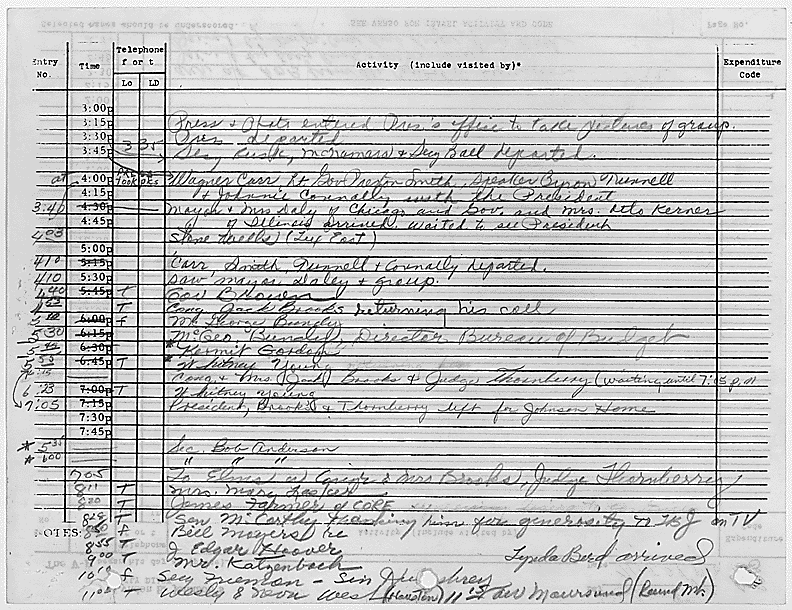 Telephone
Entry Time f or t Activity (include visited by)* Expenditure
No. Lo LD Code
3:00p
3:15p Press & Photo entered Pres's office to take pictures of group.
3:30p Pres departed
3:45p Sec Rusk, McNamara & Secy Ball departed.
4:00p Wagner Carr Lt Gov Preston Smith, Speaker Byron Tunnell
4:15p & Johnnie Connally with the President
3:40 4:30p Mayor & Mrs Daley of Chicago and Gov. and Mrs. Otto Kerner
4:45p of Illinois arrived. waited to see President
403 Steve (Lux East)
5:00p
410 5:15p Carr, Smith, Tunnell & Connally departed.
410 5:30p Saw mayor Daley & group.
440 5:45p T Gov Brown
453 T Cong Jack Brooks returning his call
6:00p f Mc George Bundy
530 6:15p McGeo. Bundy, Director Bureau of Budget
6:30p * Kermit Gordon
555 6:45p T * Whitney Young
Cong & Mrs (Jack) Brooks & Judge Thornberry (waiting until 7:05 p.m
6:23 7:00p T Whitney Young
7:05 7:15p President, Brooks & Thornberry left for Johnson Home
7:30p
7:45p
* 535 Sec. Bob Anderson
* 600 " " "
705 To Elms w/ Cong & Mrs Brooks, Judge Thornberry
811 T Mrs. Mary Lasker
820 T James Farmer of CORE
829 T Sen McCarthy thanking him for generosity to LBJ on TV
NOTES: Bill Moyers re
855 T J Edgar Hoover Lynda Bird arrived
900 Mr. Katzenbach
1010 f Secy Freeman - Sen Humphrey
1100 T Wesley & Neva West (Houston) 11 15 Aw Moursund (Round Mt.)